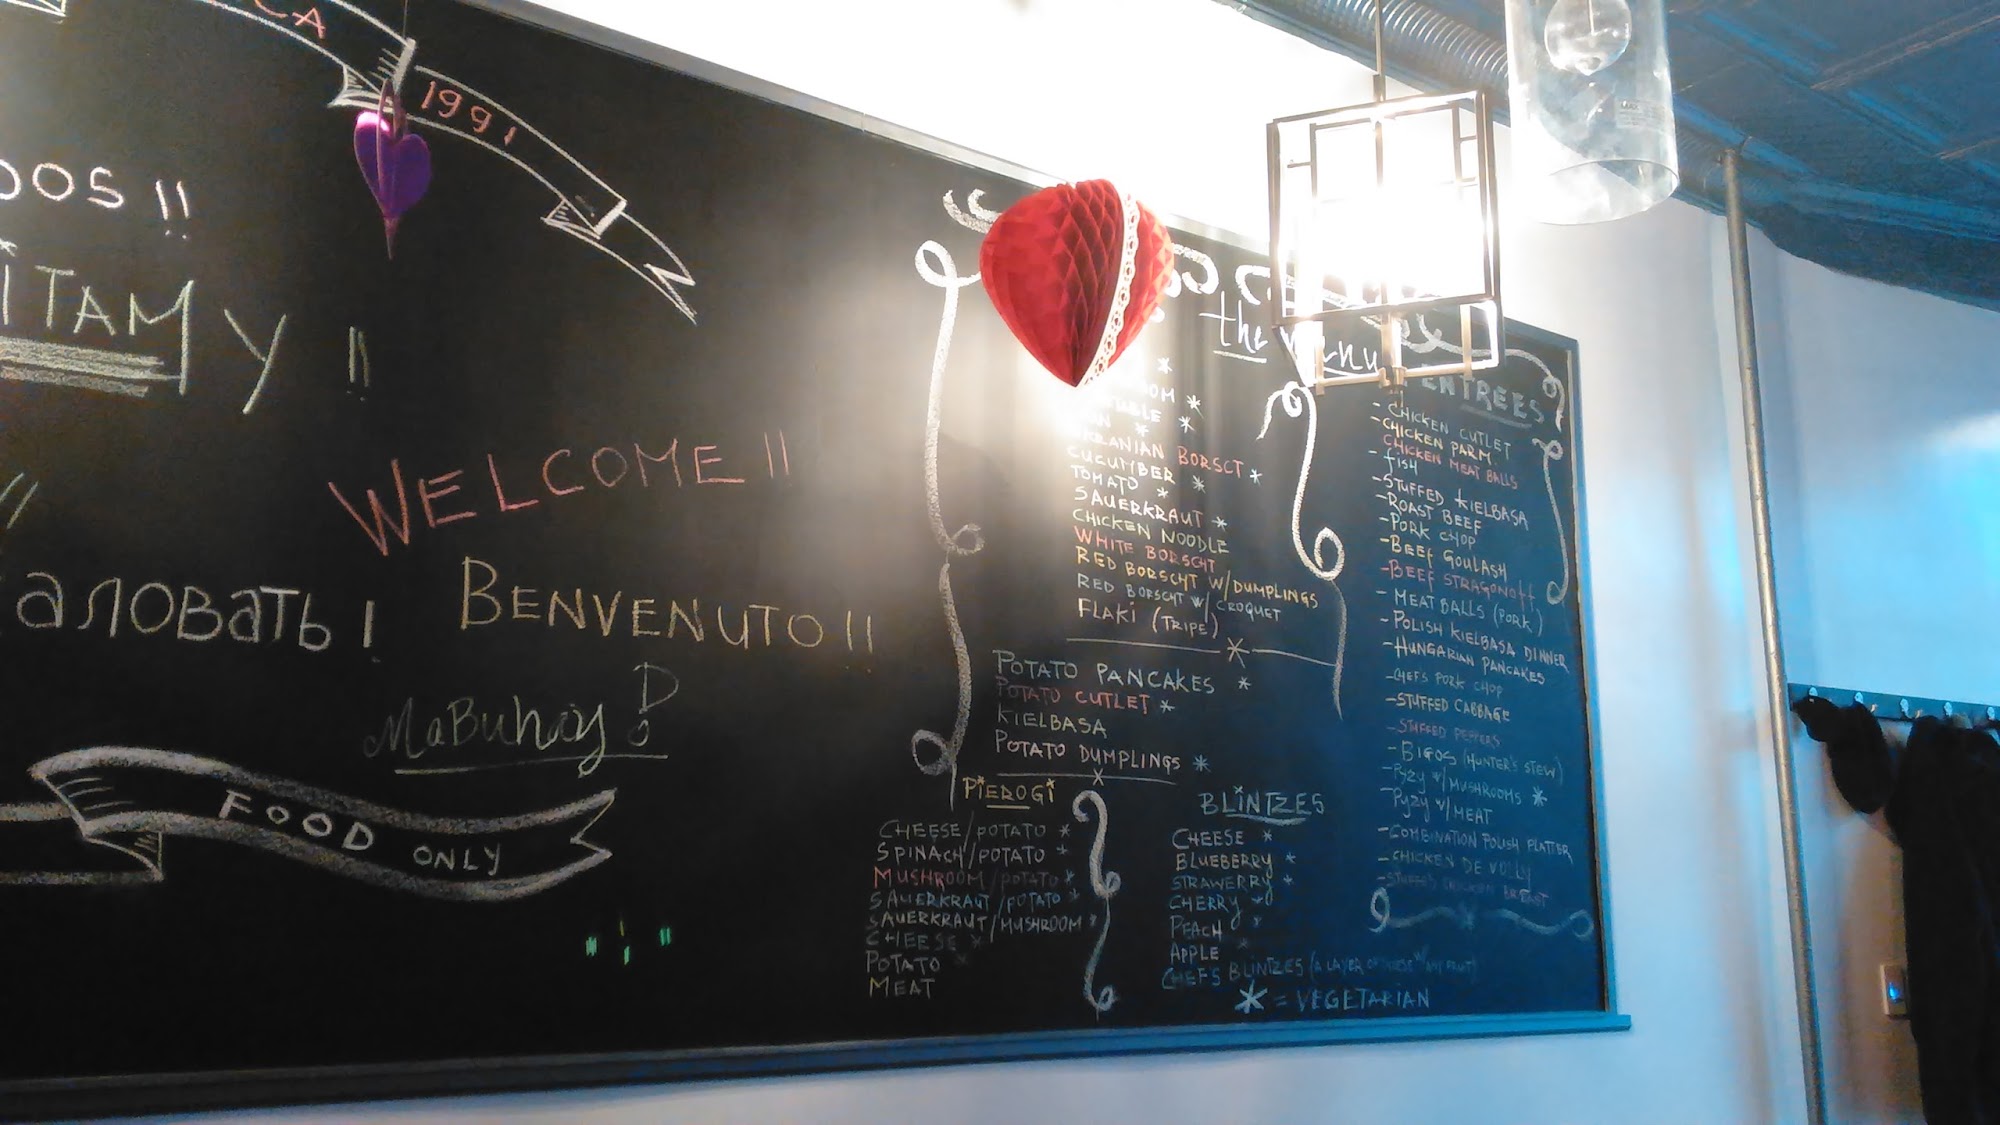 CA
1991
!!
ЇТАМ У !!
WELCOME !!
аловать!
BENVENUTO !!
MaBuhay!
FOOD ONLY
the menu
UKRANIAN BORSCT *
CUCUMBER *
TOMATO *
SAUERKRAUT *
CHICKEN NOODLE
WHITE BORSCHT
RED BORSCHT W/DUMPLINGS
RED BORSCHT W/ CROQUET
FLAKI (TRIPE)
POTATO PANCAKES *
POTATO CUTLET *
KIELBASA
POTATO DUMPLINGS *
PIEROGI
CHEESE/POTATO *
SPINACH/POTATO *
MUSHROOM/POTATO *
SAUERKRAUT/POTATO *
SAUERKRAUT/MUSHROOM *
CHEESE *
POTATO *
MEAT
BLINTZES
CHEESE *
BLUEBERRY *
STRAWERRY *
CHERRY *
PEACH *
APPLE *
CHEF'S BLINTZES (A LAYER OF CHEESE W/ ANY FRUIT)
* = VEGETARIAN
ENTREES
- CHICKEN CUTLET
- CHICKEN PARM.
CHICKEN MEAT BALLS
- fish
- STUFFED KIELBASA
- ROAST BEEF
- PORK CHOP
- BEEF GOULASH
- BEEF STRAGONOFF
- MEAT BALLS (PORK)
- POLISH KIELBASA DINNER
- HUNGARIAN PANCAKES
- CHEF'S PORK CHOP
- STUFFED CABBAGE
- STUFFED PEPPERS
- BIGOS (HUNTER'S STEW)
- PYZY W/MUSHROOMS *
- PYZY W/MEAT
- COMBINATION POLISH PLATTER
- CHICKEN DE VOLLY
- STUFFED CHICKEN BREAST